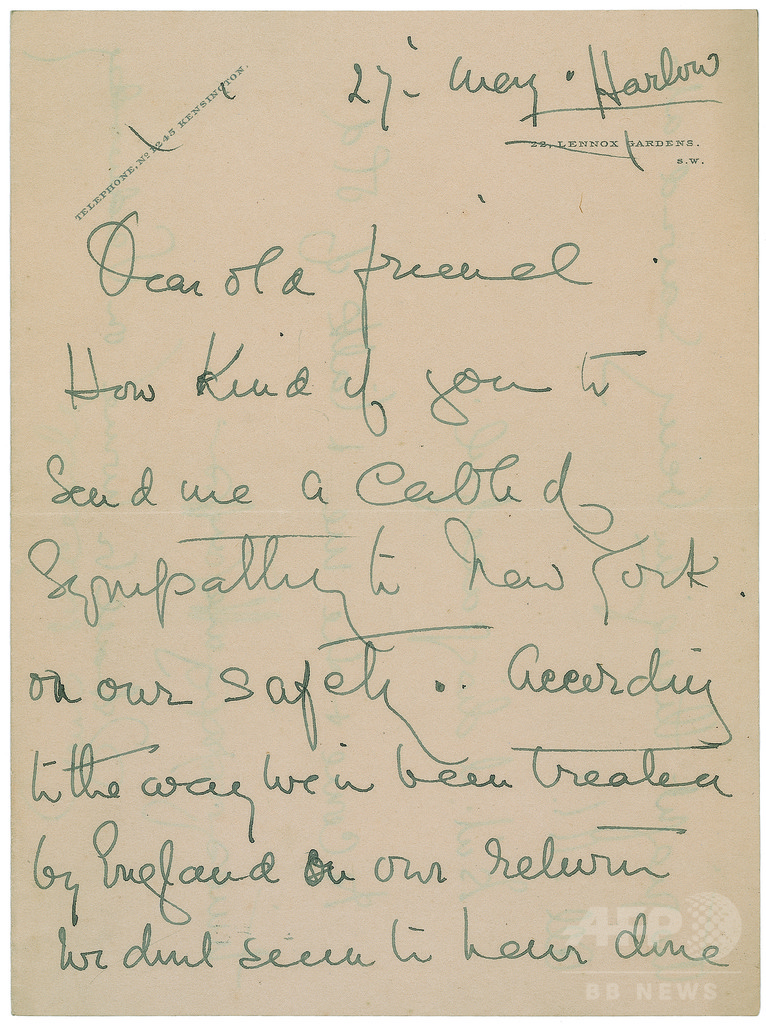 TELEPHONE, No 1245 KENSINGTON.
27- May. Harlow
22, LENNOX GARDENS.
S.W.
Dear old friend.
How kind of you to
send me a Cable of
Sympathy to New York.
on our safety.. According
to the way we've been treated
by England on our return
We dont seem to have done
AFP
BB NEWS